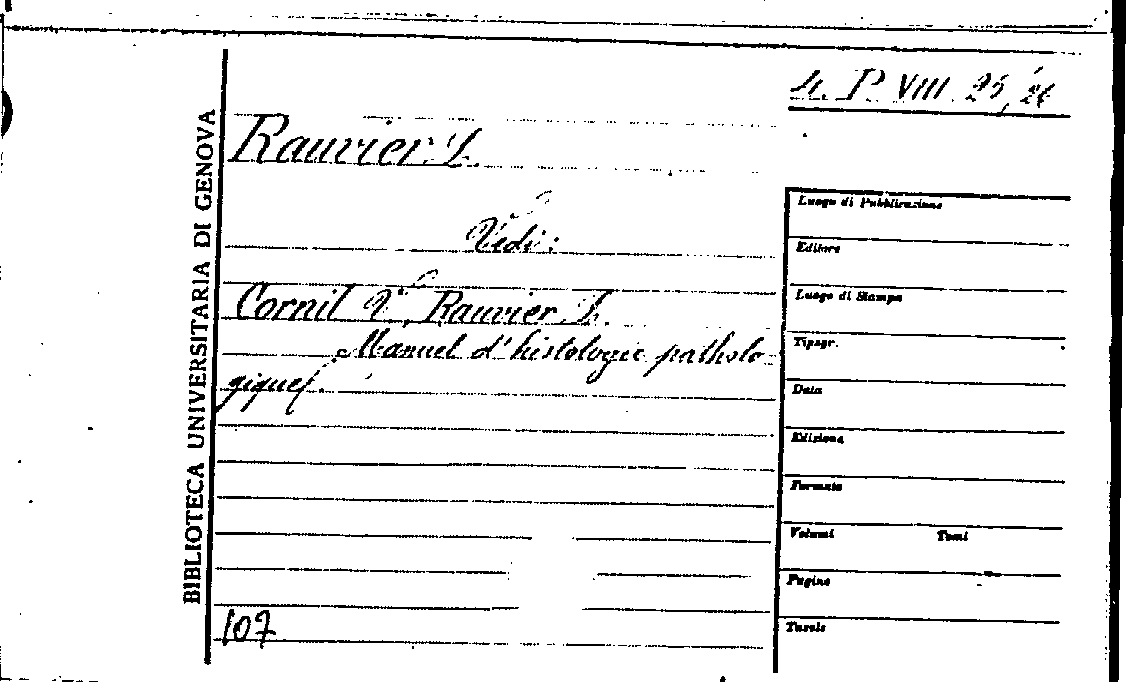 4. P. VIII. 25, 26
Rauvier L.
Vedi:
Cornil V., Rauvier L.
Manuel d'histologie patholo-
gique.
107
BIBLIOTECA UNIVERSITARIA DI GENOVA
Luogo di Pubblicazione
Editore
Luogo di Stampa
Tipogr.
Data
Edizione
Formato
Volumi Tomi
Pagine
Tavole